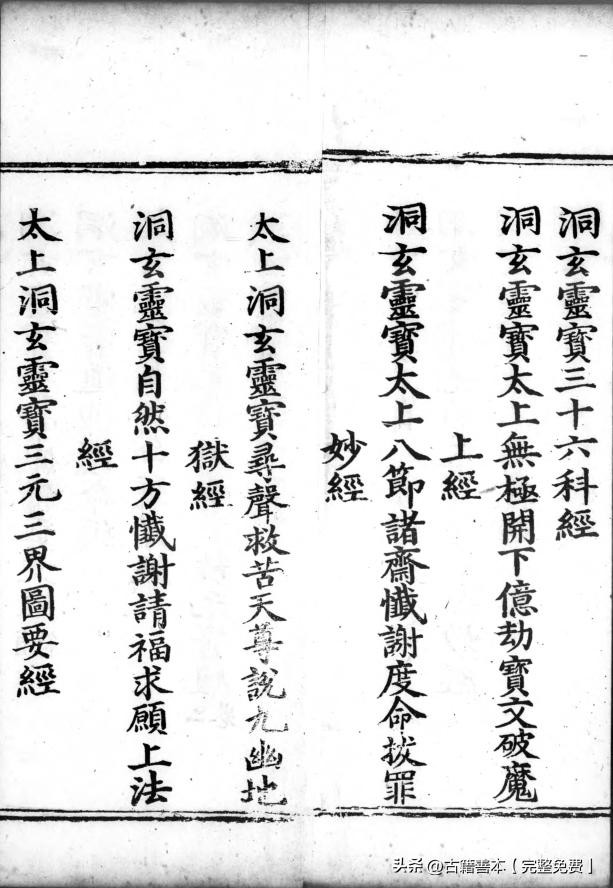 洞玄靈寶三十六科經
洞玄靈寶太上無極開下億劫寶文破魔
上經
洞玄靈寶太上八節諸齋懺謝度命拔罪
妙經
太上洞玄靈寶尋聲救苦天尊說九幽地
獄經
洞玄靈寶自然十方懺謝請福求願上法
經
太上洞玄靈寶三元三界圖要經
头条 @古籍善本【完整免费】